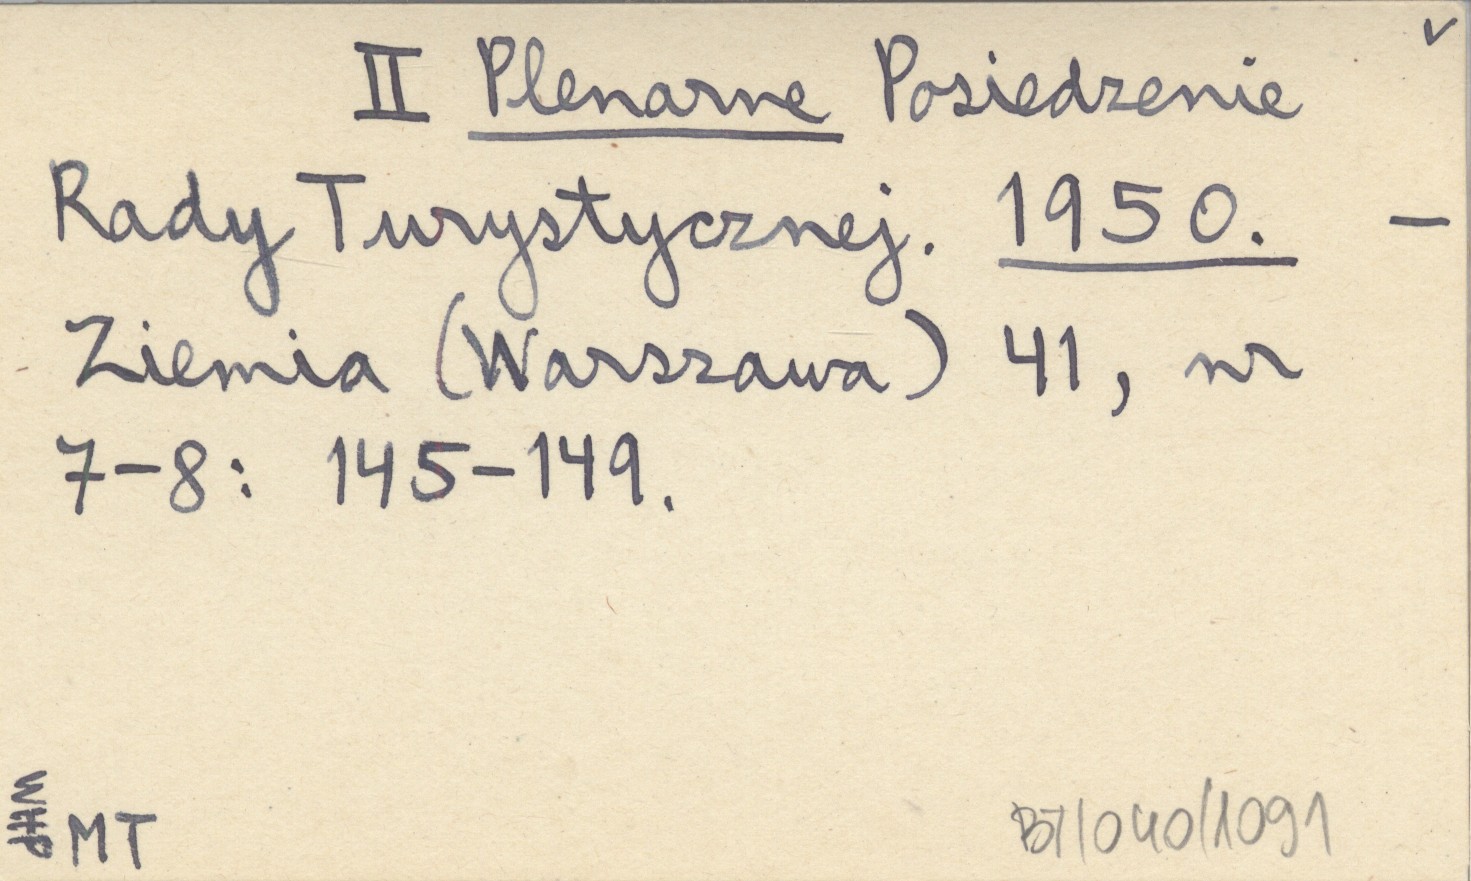 ✓
II Plenarne Posiedzenie
Rady Turystycznej. 1950. –
Ziemia (Warszawa) 41, nr
7–8: 145–149.
WHP
MT
BT/040/1091